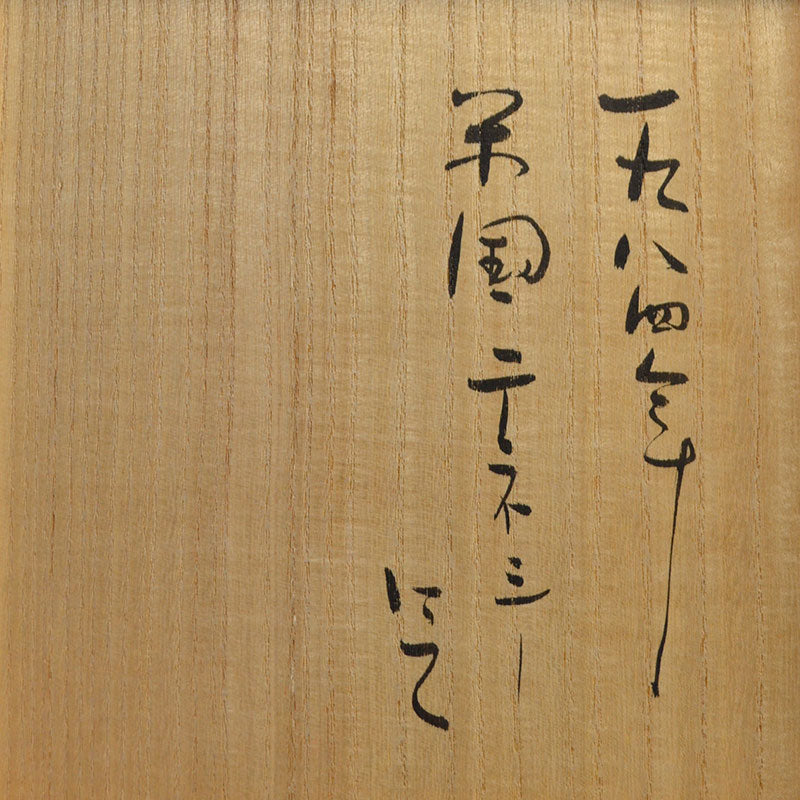 一九八四年
米国テネシー
にて